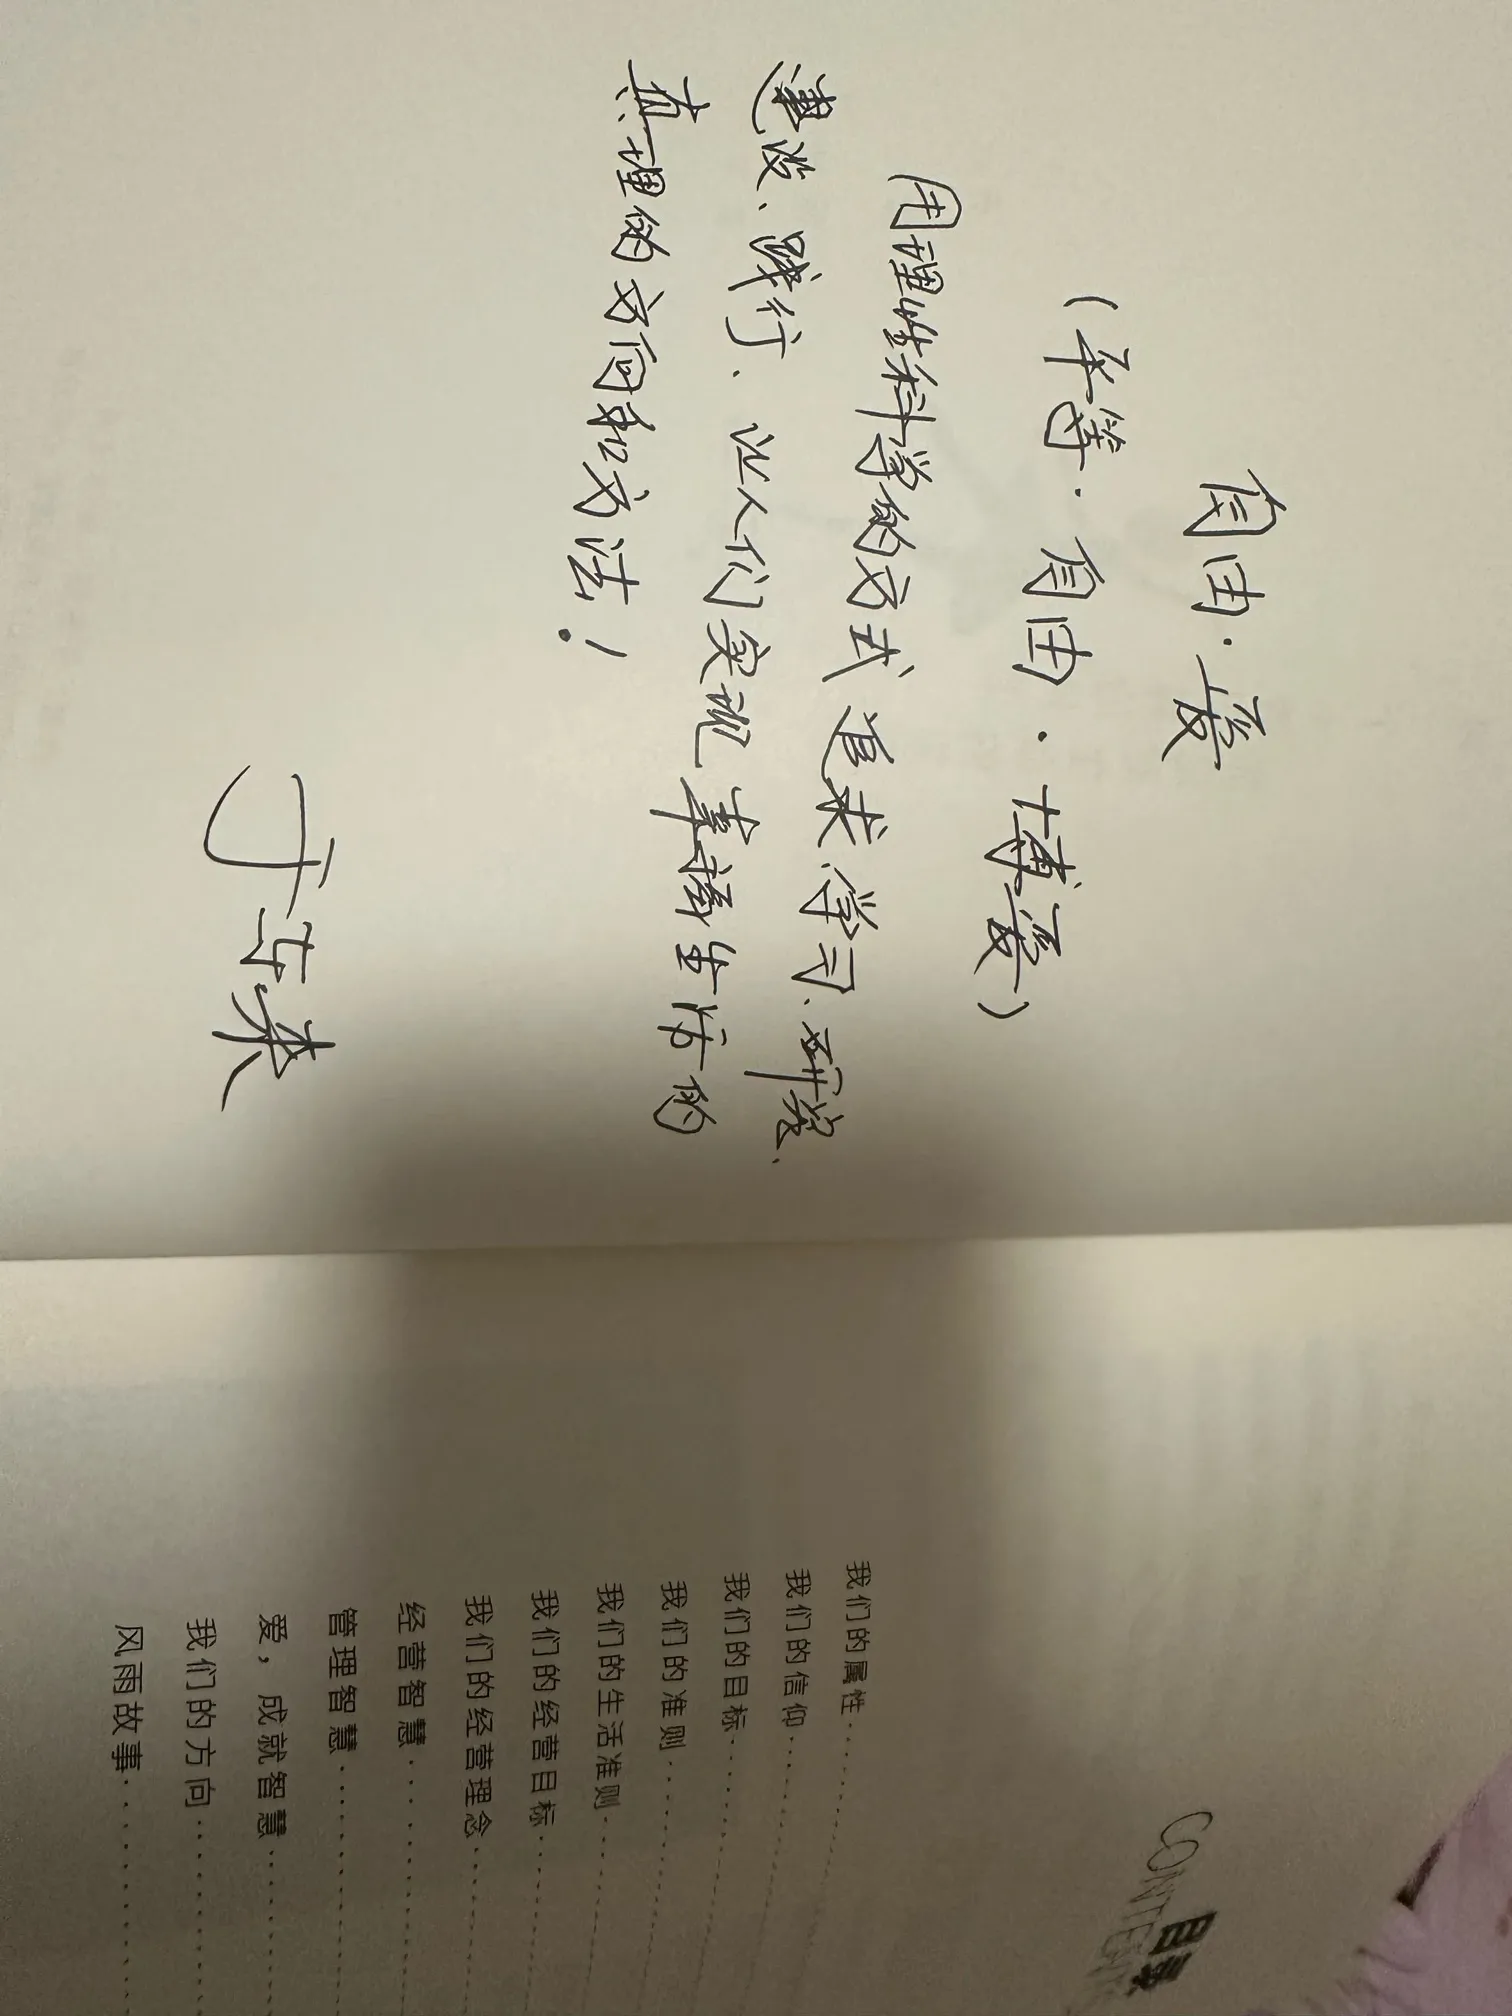 自由·爱
(平等·自由·博爱)
用理性科学的方式追求、学习、研究、
建设、践行、让人们实现幸福生活的
真理的方向和方法！
目录
CONTENTS
我们的属性
我们的信仰
我们的目标
我们的准则
我们的生活准则
我们的经营目标
我们的经营理念
经营智慧
管理智慧
爱，成就智慧
我们的方向
风雨故事